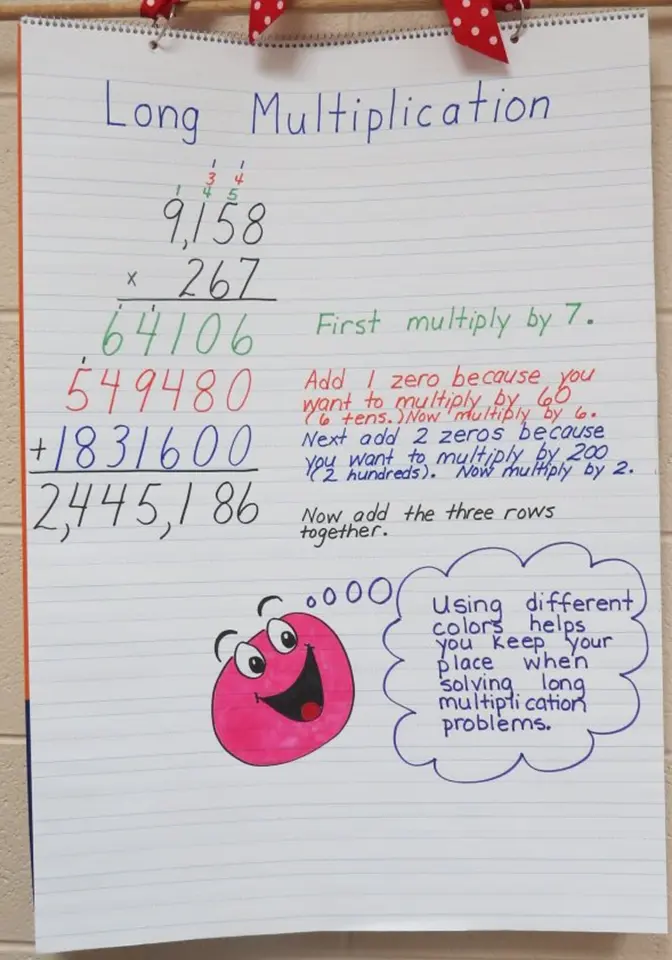 Long Multiplication
1 1
3 4
1 4 5
9,158
x 267
1 1
64106
First multiply by 7.
1
549480
Add 1 zero because you
want to multiply by 60
(6 tens.) Now multiply by 6.
+1831600
Next add 2 zeros because
you want to multiply by 200
(2 hundreds). Now multiply by 2.
2,445,186
Now add the three rows
together.
Using different
colors helps
you keep your
place when
solving long
multiplication
problems.